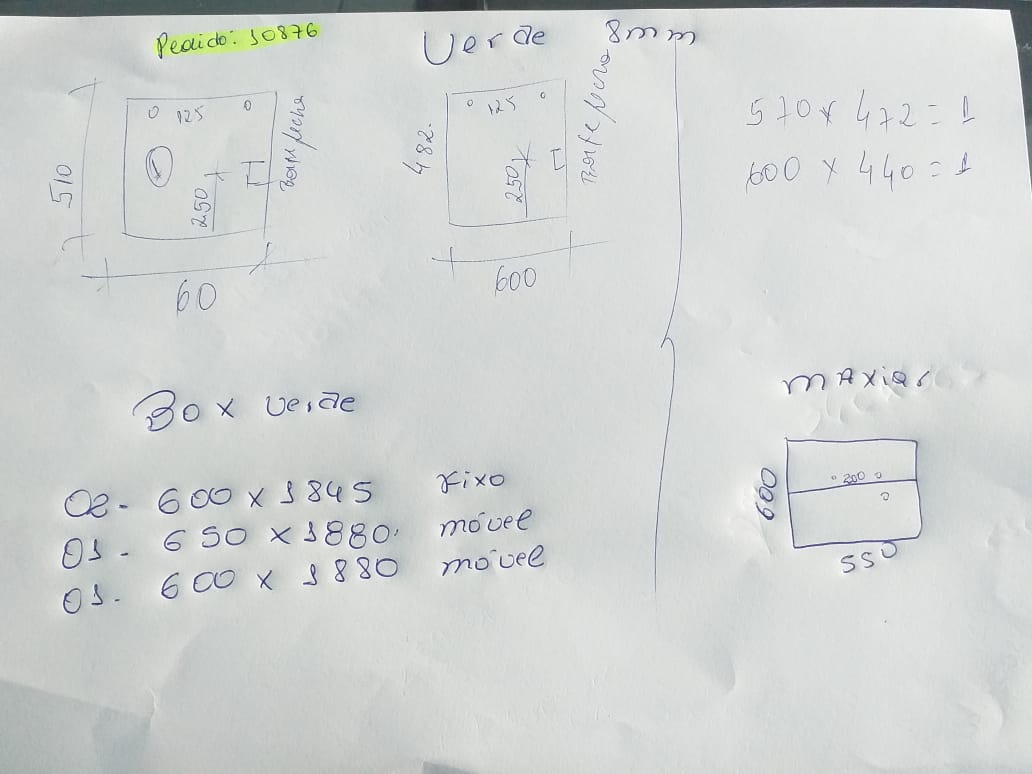 Pedido: 10876
Verde 8mm
125
510
250
60
125
482.
250
600
570 x 472 = 1
600 x 440 = 1
Box verde
02- 600 x 1845 Fixo
01- 650 x 1880. móvel
01- 600 x 1880 móvel
600
200
550